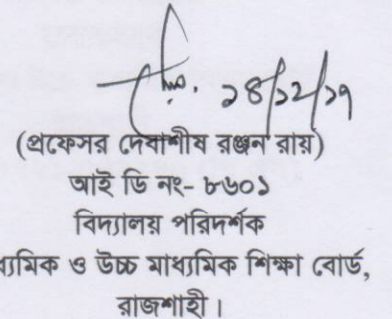 ১৪/১২/১৭
(প্রফেসর দেবাশীষ রঞ্জন রায়)
আই ডি নং- ৮৬০১
বিদ্যালয় পরিদর্শক
ধ্যমিক ও উচ্চ মাধ্যমিক শিক্ষা বোর্ড,
রাজশাহী।